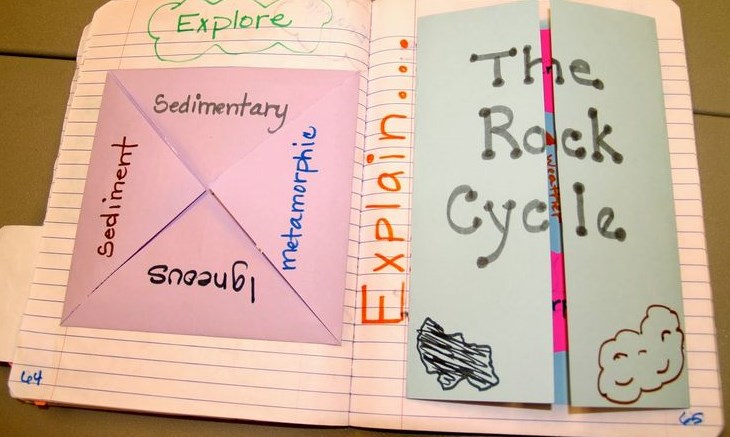 Explore
Sedimentary
Sediment
metamorphic
Igneous
64
Explain...
The
Rock
Cycle
65